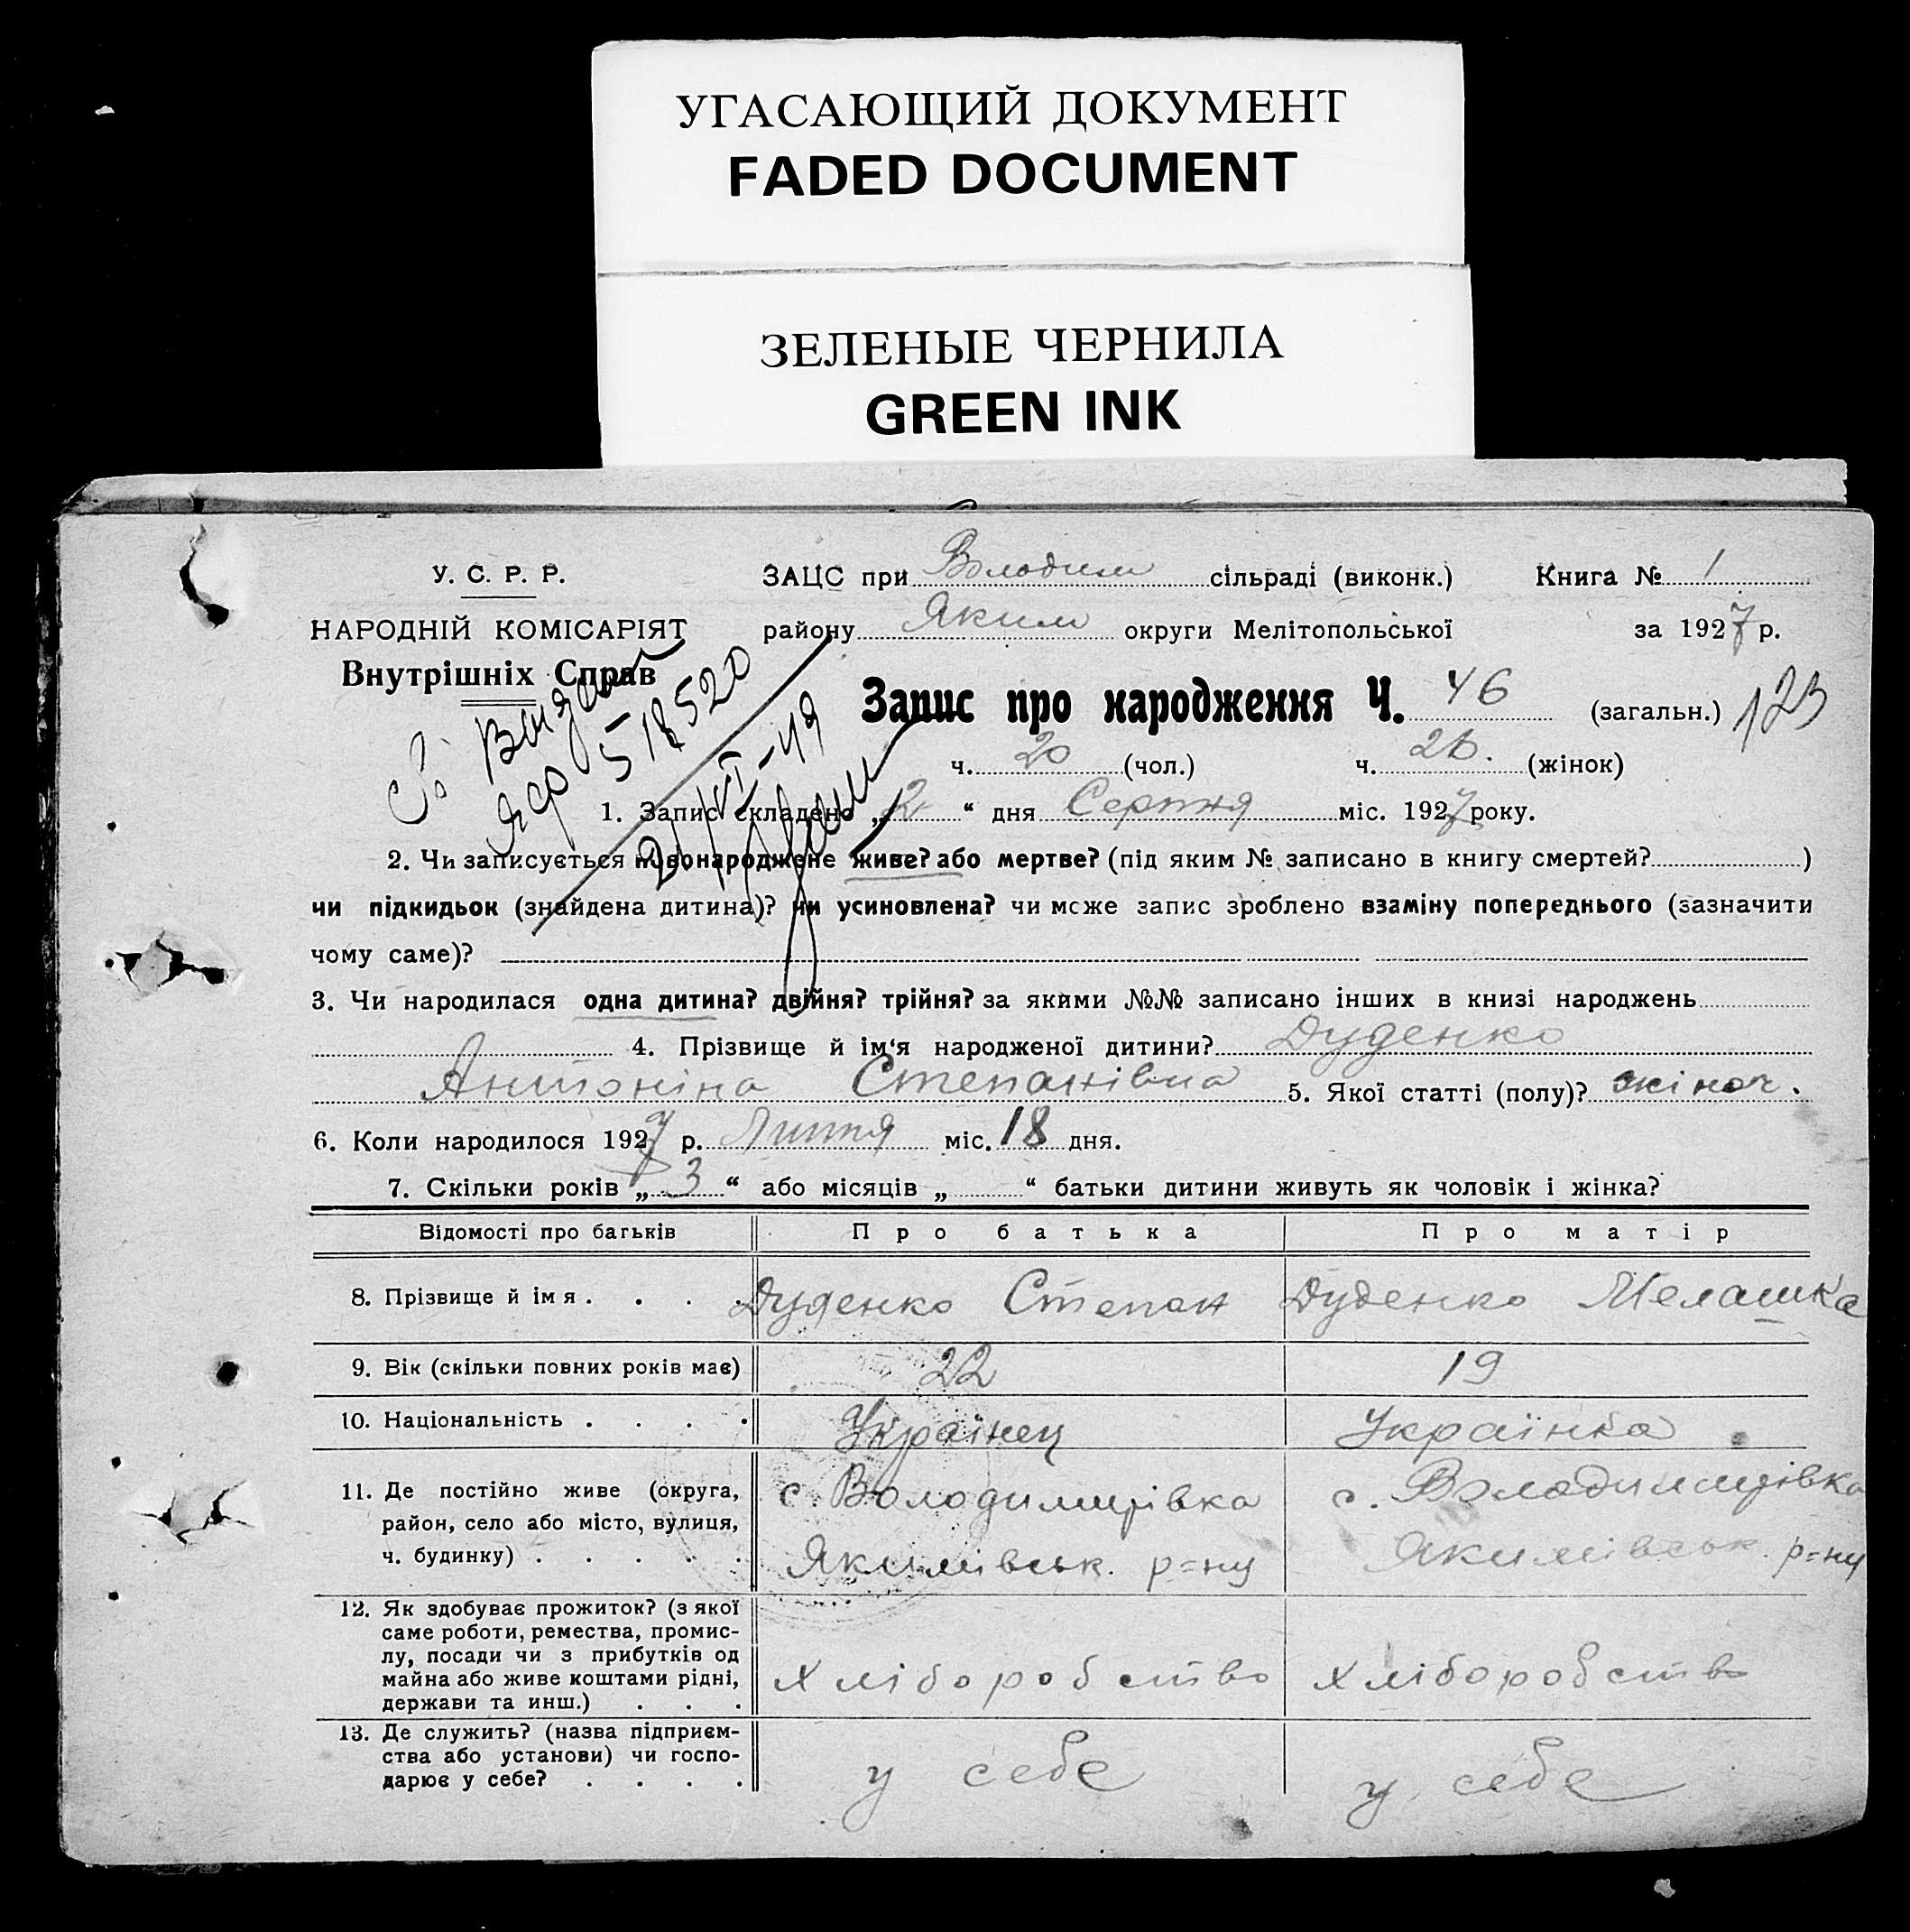 УГАСАЮЩИЙ ДОКУМЕНТ
FADED DOCUMENT
ЗЕЛЕНЫЕ ЧЕРНИЛА
GREEN INK
У. С. Р. Р.
НАРОДНІЙ КОМІСАРІЯТ
Внутрішніх Справ
ЗАЦС при Володим сільраді (виконк.) Книга № 1
району Яким округи Мелітопольської за 1927 р.
518520
21/VI-49
Запис про народження Ч. 46 (загальн.) 123
ч. 20 (чол.) ч. 26. (жінок)
1. Запис складено „2“ дня Серпня міс. 1927 року.
2. Чи записується новонароджене живе? або мертве? (під яким № записано в книгу смертей? )
чи підкидьок (знайдена дитина)? чи усиновлена? чи може запис зроблено взаміну попереднього (зазначити
чому саме)?
3. Чи народилася одна дитина? двійня? трійня? за якими №№ записано інших в книзі народжень
4. Прізвище й ім‘я народженої дитини? Дуденко
Антоніна Степанівна 5. Якої статті (полу)? жіноч.
6. Коли народилося 1927 р. Липня міс. 18 дня.
7. Скільки років „3“ або місяців „ “ батьки дитини живуть як чоловік і жінка?
Відомості про батьків Про батька Про матір
8. Прізвище й ім я . . . . Дуденко Степан Дуденко Мелашка
9. Вік (скільки повних років має) 22 19
10. Національність . . . . Українец Українка
11. Де постійно живе (округа,
район, село або місто, вулиця,
ч. будинку) . . . . .
с. Володимирівка
Якимівськ. р=ну
с. Володимирівка
Якимівськ. р=ну
12. Як здобуває прожиток? (з якої
саме роботи, ремества, промис-
лу, посади чи з прибутків од
майна або живе коштами рідні,
держави та инш.) . . .
хліборобство хліборобство
13. Де служить? (назва підприєм-
ства або установи) чи госпо-
дарює у себе? . . . .
у себе у себе